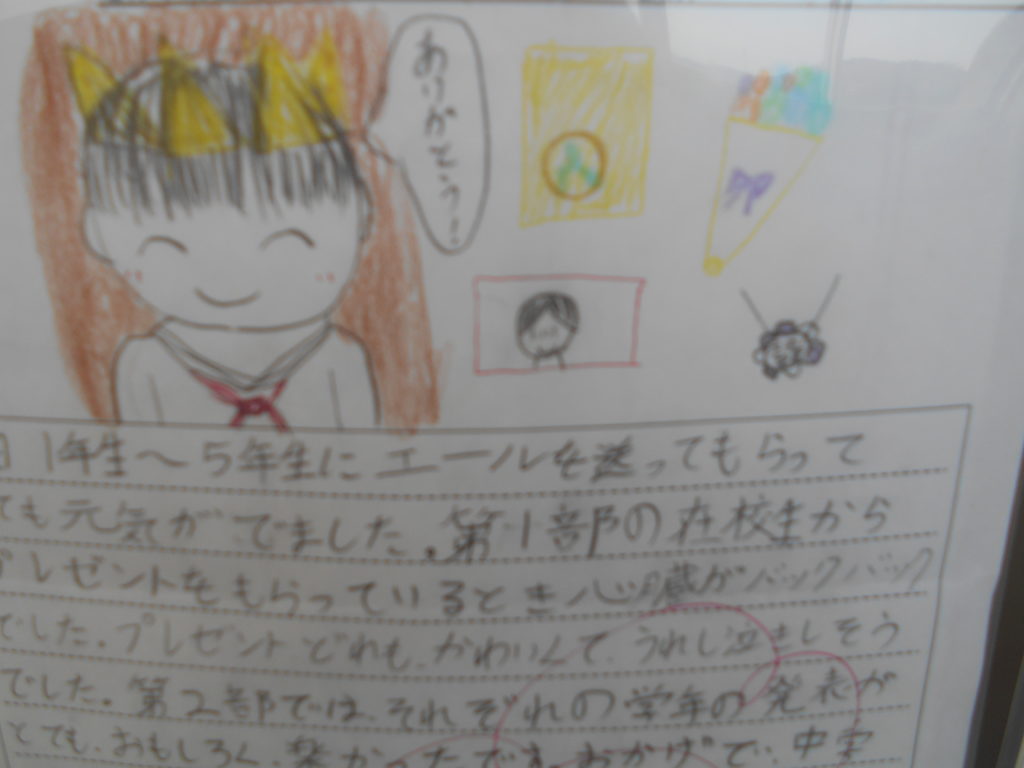 ありがとう!
1年生〜5年生にエールを送ってもらって
ても元気がでました。第1部の在校生から
プレゼントをもらっているとき心臓がバックバック
でした。プレゼントどれも、かわいくて、うれし泣きしそう
でした。第2部では、それぞれの学年の発表が
とても、おもしろく、楽かったです。おかげで、中学